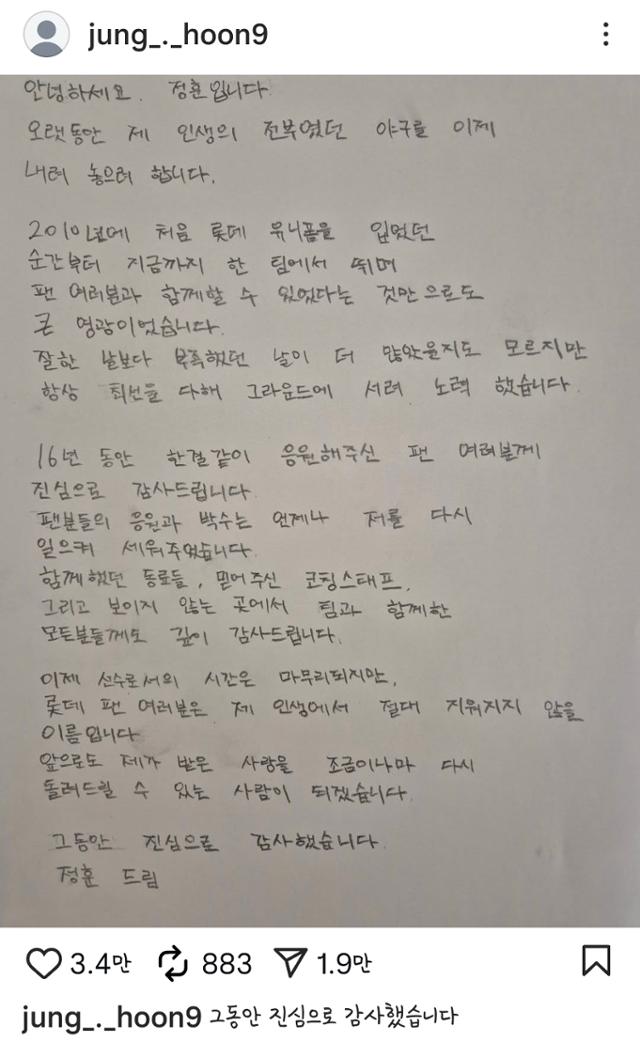 jung_._hoon9
안녕하세요. 정훈입니다
오랫동안 제 인생의 전부였던 야구를 이제
내려 놓으려 합니다.
2010년에 처음 롯데 유니폼을 입었던
순간부터 지금까지 한 팀에서 뛰며
팬 여러분과 함께할 수 있었다는 것만으로도
큰 영광이었습니다.
잘한 날보다 부족했던 날이 더 많았을지도 모르지만
항상 최선을 다해 그라운드에 서려 노력 했습니다.
16년 동안 한결같이 응원해주신 팬 여러분께
진심으로 감사드립니다
팬분들의 응원과 박수는 언제나 저를 다시
일으켜 세워주었습니다.
함께했던 동료들, 믿어주신 코칭스태프,
그리고 보이지 않는 곳에서 팀과 함께한
모든분들께도 깊이 감사드립니다.
이제 선수로서의 시간은 마무리되지만,
롯데 팬 여러분은 제 인생에서 절대 지워지지 않을
이름입니다
앞으로도 제가 받은 사랑을 조금이나마 다시
돌려드릴 수 있는 사람이 되겠습니다.
그동안 진심으로 감사했습니다.
정훈 드림
3.4만 883 1.9만
jung_._hoon9 그동안 진심으로 감사했습니다